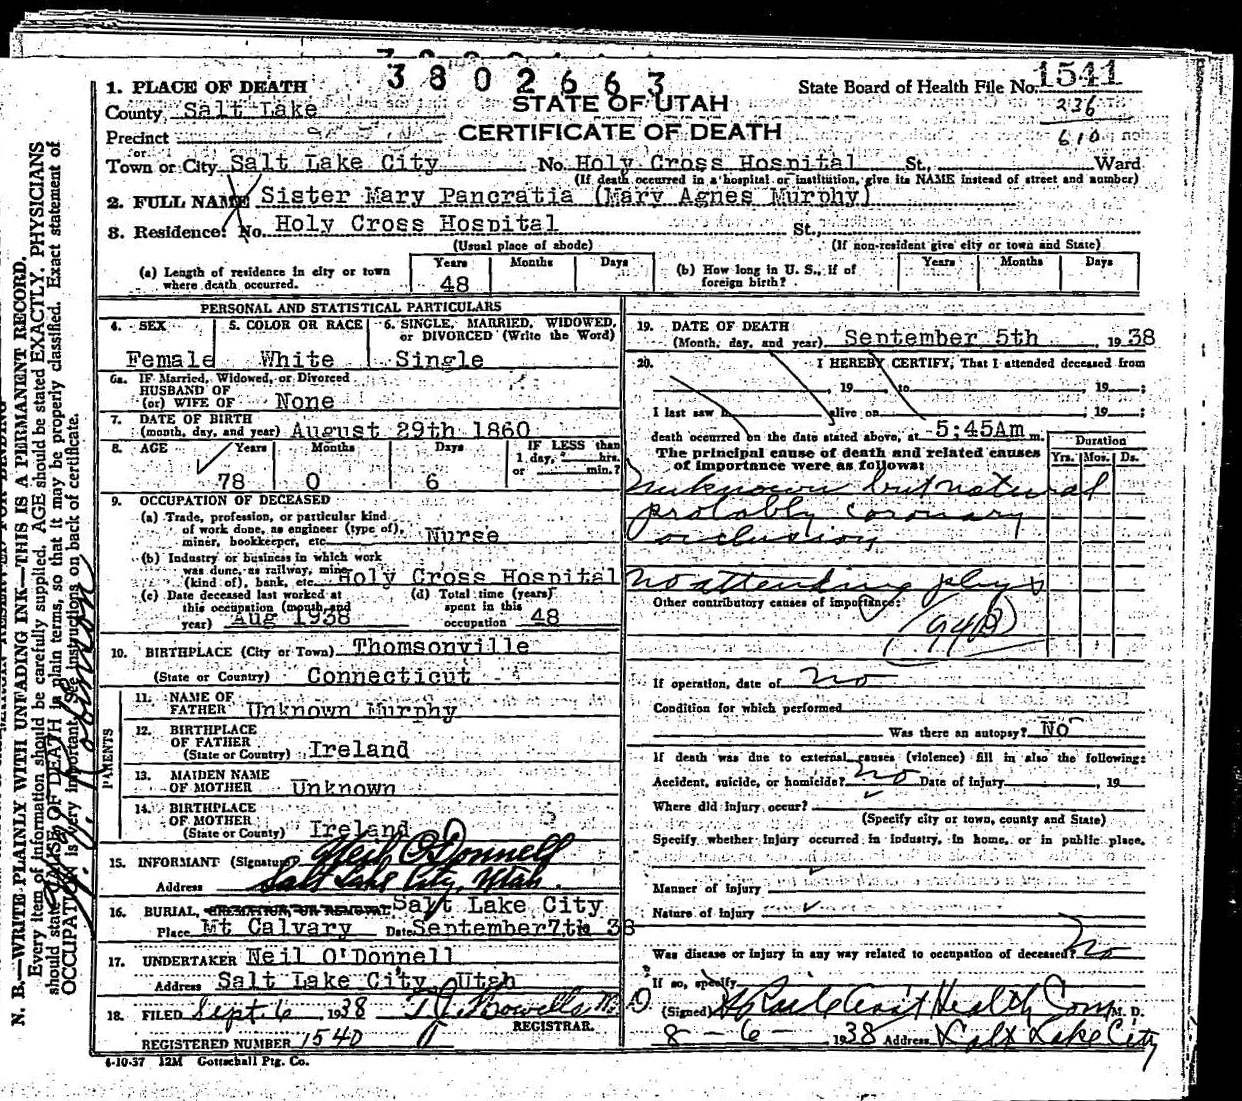 3802663
1. PLACE OF DEATH
State Board of Health File No. 1541
County Salt Lake
STATE OF UTAH
236
Precinct
CERTIFICATE OF DEATH
610
or
Town or City Salt Lake City No. Holy Cross Hospital St., Ward
(If death occurred in a hospital or institution, give its NAME instead of street and number)
2. FULL NAME Sister Mary Pancratia (Mary Agnes Murphy)
3. Residence: No. Holy Cross Hospital St.,
(Usual place of abode) (If non-resident give city or town and State)
(a) Length of residence in city or town where death occurred. Years 48 Months Days
(b) How long in U. S., if of foreign birth? Years Months Days
PERSONAL AND STATISTICAL PARTICULARS
4. SEX Female
5. COLOR OR RACE White
6. SINGLE, MARRIED, WIDOWED, or DIVORCED (Write the Word) Single
6a. IF Married, Widowed, or Divorced
HUSBAND OF
(or) WIFE OF None
7. DATE OF BIRTH
(month, day, and year) August 29th 1860
8. AGE Years 78 Months 0 Days 6
IF LESS than
1 day, hrs.
or min.?
9. OCCUPATION OF DECEASED
(a) Trade, profession, or particular kind
of work done, as engineer (type of),
miner, bookkeeper, etc. Nurse
(b) Industry or business in which work
was done, as railway, mine
(kind of), bank, etc. Holy Cross Hospital
(c) Date deceased last worked at
this occupation (month and
year) Aug 1938
(d) Total time (years)
spent in this
occupation 48
10. BIRTHPLACE (City or Town) Thomsonville
(State or Country) Connecticut
PARENTS
11. NAME OF
FATHER Unknown Murphy
12. BIRTHPLACE
OF FATHER
(State or Country) Ireland
13. MAIDEN NAME
OF MOTHER Unknown
14. BIRTHPLACE
OF MOTHER
(State or County) Ireland
15. INFORMANT (Signature) Neil O'Donnell
Address Salt Lake City, Utah.
16. BURIAL, CREMATION, OR REMOVAL Salt Lake City
Place Mt Calvary Date September 7th 38
17. UNDERTAKER Neil O'Donnell
Address Salt Lake City, Utah
18. FILED Sept. 6 1938 T. J. Howells M.D.
REGISTRAR.
REGISTERED NUMBER 1540
4-10-37 12M Gottschall Ptg. Co.
19. DATE OF DEATH
(Month, day, and year) September 5th 1938
20. I HEREBY CERTIFY, That I attended deceased from
, 19 , to , 19 ;
I last saw h alive on , 19 ;
death occurred on the date stated above, at 5:45Am m.
The principal cause of death and related causes
of importance were as follows:
Duration
Yrs. Mos. Ds.
Unknown but natural
probably coronary
occlusion
No attending phys
Other contributory causes of importance:
(94B)
If operation, date of no
Condition for which performed
Was there an autopsy? No
If death was due to external causes (violence) fill in also the following:
Accident, suicide, or homicide? no Date of injury , 19
Where did injury occur?
(Specify city or town, county and State)
Specify whether injury occurred in industry, in home, or in public place.
Manner of Injury
Nature of Injury
Was disease or injury in any way related to occupation of deceased? no
If so, specify
(Signed) Health Com M. D.
8-6- 1938 Address Salt Lake City
N. B.—WRITE PLAINLY WITH UNFADING INK—THIS IS A PERMANENT RECORD.
Every item of information should be carefully supplied. AGE should be stated EXACTLY. PHYSICIANS
should state CAUSE OF DEATH in plain terms, so that it may be properly classified. Exact statement of
OCCUPATION is very important. See instructions on back of certificate.